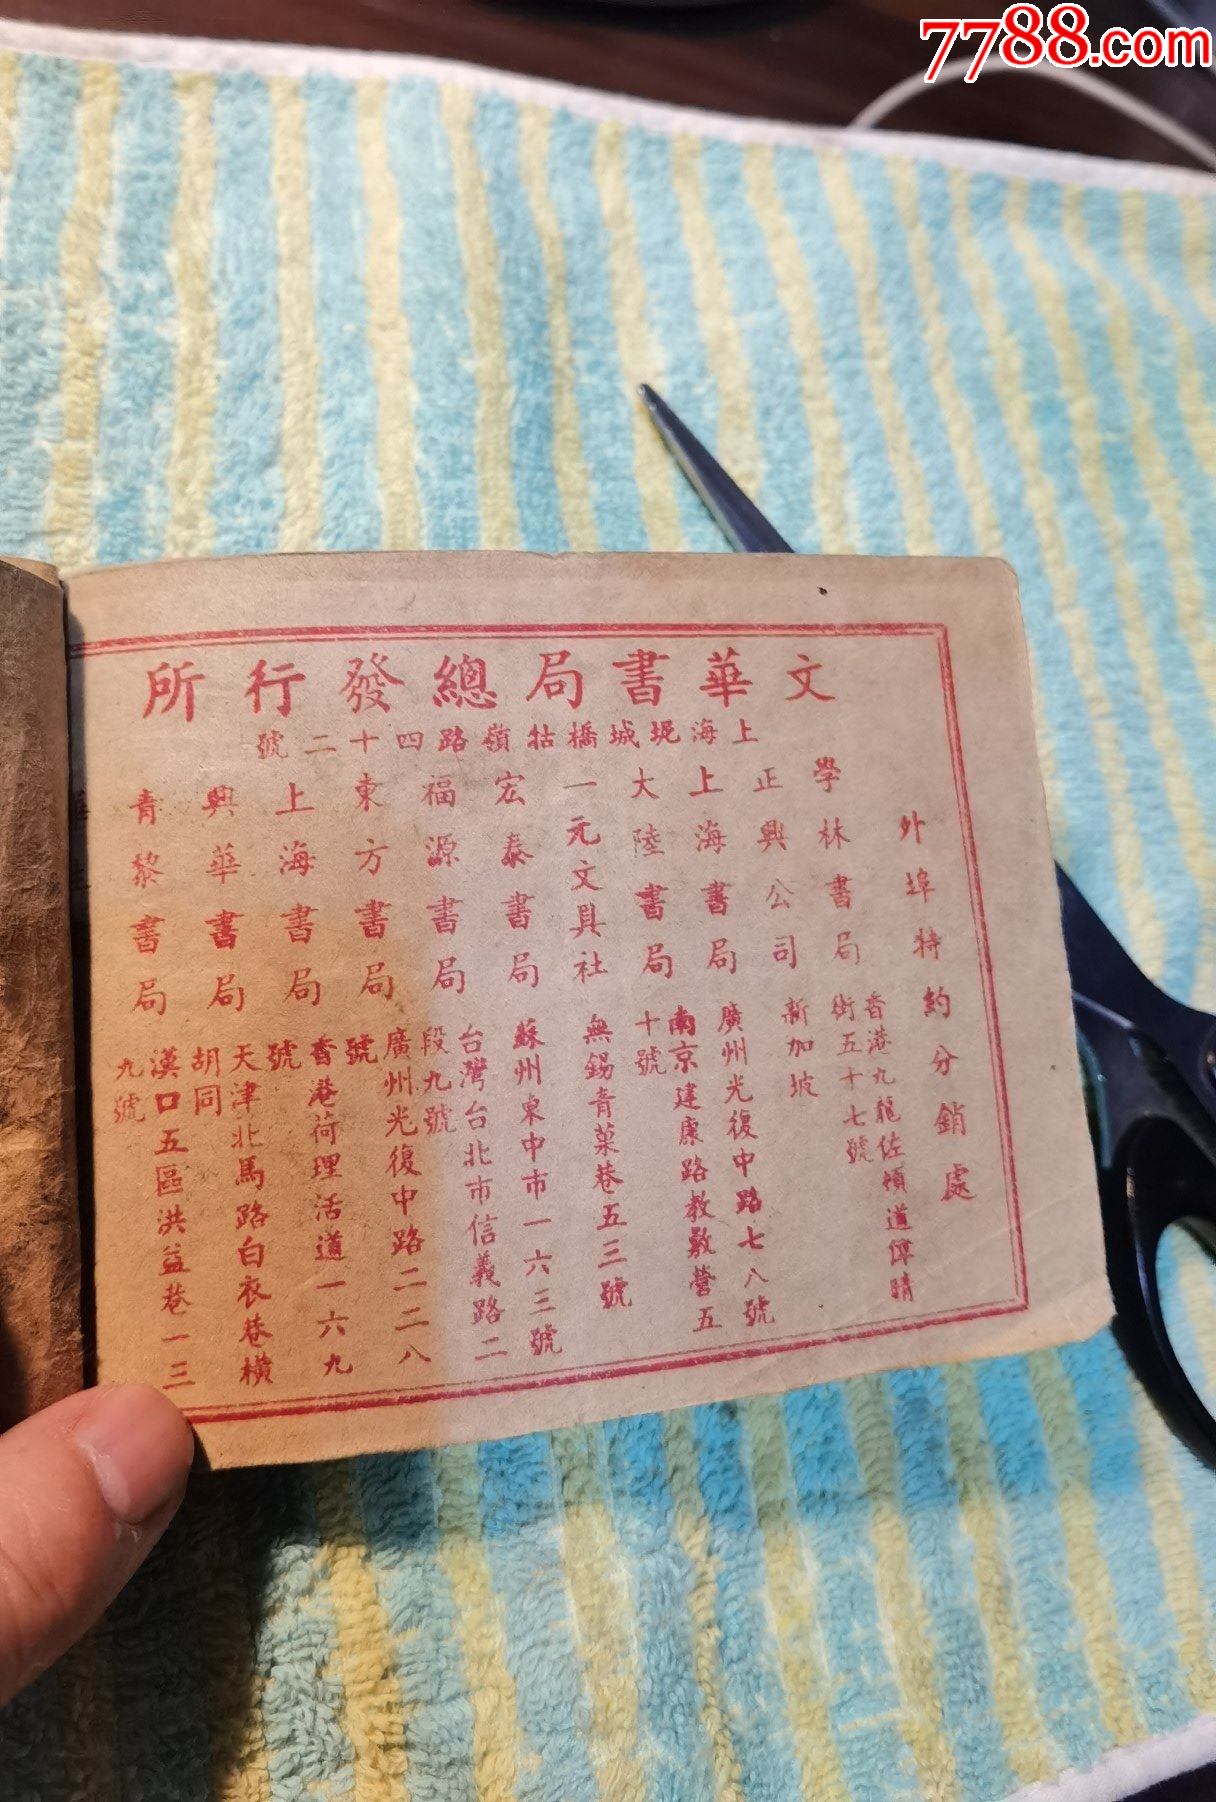 7788.com
文華書局總發行所
上海坭城橋牯嶺路四十二號
外埠特約分銷處
學林書局
香港九龍佐頓道渾晴
街五十七號
正興公司
新加坡
上海書局
廣州光復中路七八號
大陸書局
南京建康路教敷營五
十號
一元文具社
無錫青菓巷五三號
宏泰書局
蘇州東中市一六三號
福源書局
台灣台北市信義路二
段九號
東方書局
廣州光復中路二二八
號
上海書局
香港荷理活道一六九
號
興華書局
天津北馬路白衣巷橫
胡同
青黎書局
漢口五區洪益巷一三
九號